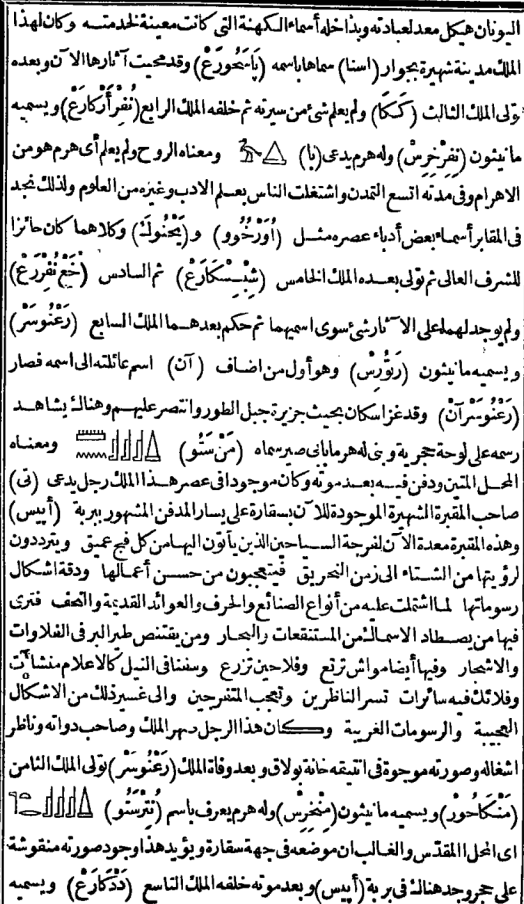 اليونان هيكل معد لعبادته وبداخله أسماء الكهنة التي كانت معينة لخدمته وكان لهذا
الملك مدينة شهيرة بجوار (اسنا) سماها باسمه (يَاسَحُورَعْ) وقد محيت آثارها الآن وبعده
تولى الملك الثالث (كَكَا) ولم يعلم شئ من سيرته ثم خلفه الملك الرابع (نُفِرْأَرْكَارَعْ) ويسميه
مانيثون (نِفِرْخِرِسْ) وله هرم يدعى (با) ومعناه الروح ولم يعلم أى هرم هو من
الاهرام وفى مدته اتسع التمدن واشتغلت الناس بعلم الادب وغيره من العلوم ولذلك نجد
فى المقابر أسماء بعض أدباء عصره مثل (أُوْرْخُوو) و (يَحْنُوكْ) وكلاهما كان حائزا
للشرف العالى ثم تولى بعده الملك الخامس (شِبْسِسْكَارَعْ) ثم السادس (خَعْ نُفِرْرَعْ)
ولم يوجد لهما على الآثار شئ سوى اسميهما ثم حكم بعدهما الملك السابع (رَعْنُوسَرْ)
ويسميه مانيثون (رَتُورِسْ) وهو أول من اضاف (آن) اسم عائلته الى اسمه فصار
(رَعْنُوسَرْآنْ) وقد غزا سكان بحيث جزيرة جبل الطور وانتصر عليهم وهناك يشاهد
رسمه على لوحة حجرية وبنى له هرما بابى صير سماه (مَنْ سَتُو) ومعناه
المحل المتين ودفن فيه بعد موته وكان موجودا فى عصر هذا الملك رجل يدعى (تى)
صاحب المقبرة الشهيرة الموجودة للآن بسقارة على يسار المدفن المشهور ببرية (أبيس)
وهذه المقبرة معدة الآن لفرجة السياحين الذين يأتون اليها من كل فج عميق ويترددون
لرؤيتها من الشتاء الى زمن التحريق فيتعجبون من حسن أعمالها ودقة اشكال
رسوماتها لما اشتملت عليه من أنواع الصنائع والحرف والعوائد القديمة والتحف فترى
فيها من يصطاد الاسماك من المستنقعات والبحار ومن يقتنص طير البر فى الفلاوات
والاشجار وفيها أيضا مواش ترتع وفلاحين تزرع وسفنا فى النيل كالاعلام منشآت
وفلائك فيه سائرات تسر الناظرين وتعجب المتفرجين والى غير ذلك من الاشكال
العجيبة والرسومات الغريبة وكان هذا الرجل صهر الملك وصاحب دواته وناظر
اشغاله وصورته موجودة فى انتيقه خانة بولاق وبعد وفاة الملك (رَعْنُوسَرْ) تولى الملك الثامن
(مَنْكَاحُورْ) ويسميه مانيثون (مِنْخِرِسْ) وله هرم يعرف باسم (نُتِرْسَتُو)
اى المحل المقدّس والغالب ان موضعه فى جهة سقارة ويؤيد هذا وجود صورته منقوشة
على حجر وجد هناك فى برية (أبيس) وبعد موته خلفه الملك التاسع (دَدْكَارَعْ) ويسميه